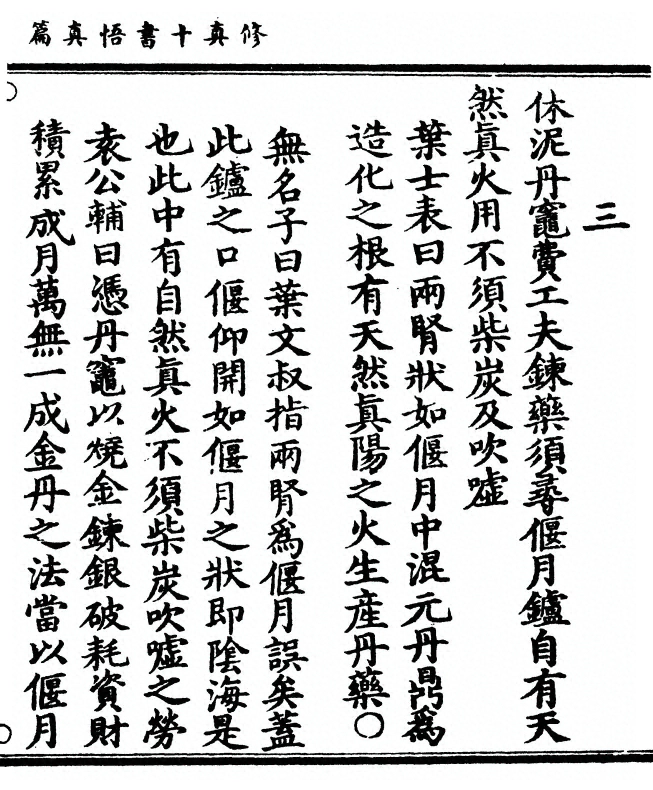 修真十書悟真篇
三
休泥丹竈費工夫鍊藥須尋偃月鑪自有天
然眞火用不須柴炭及吹噓
葉士表曰兩腎狀如偃月中混元丹鼎爲
造化之根有天然眞陽之火生産丹藥〇
無名子曰葉文叔指兩腎爲偃月誤矣蓋
此鑪之口偃仰開如偃月之狀即陰海是
也此中有自然眞火不須柴炭吹噓之勞
袁公輔曰憑丹竈以燒金鍊銀破耗資財
積累成月萬無一成金丹之法當以偃月